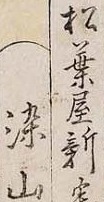 松葉屋新宅
染山